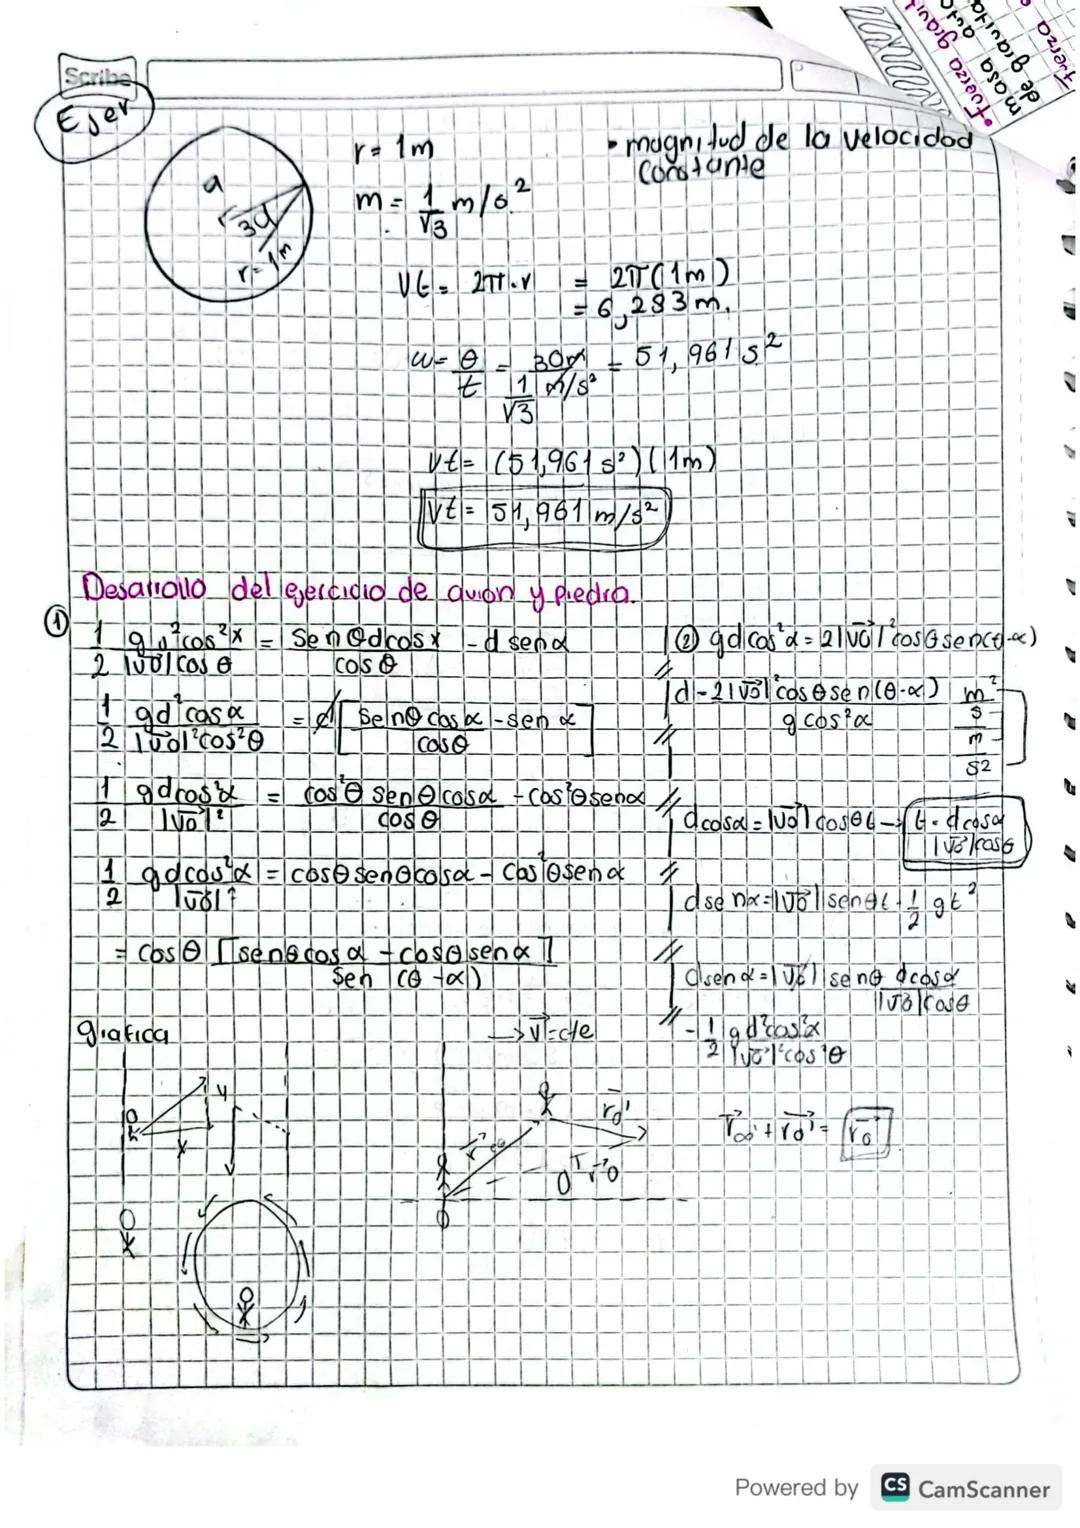 Scribe
Ejer
• Fuerza gravit
masa
de gravita
Fuerza
a
30
r= 1m
r= 1m
m= 1/√3 m/s²
• magnitud de la velocidad
constante
Vt= 2π.r = 2π(1m)
= 6,283m.
w= θ/t = 30m / 1/√3 m/s² = 51,961 s²
Vt= (51,961 s²)(1m)
Vt= 51,961 m/s²
Desarrollo del ejercicio de avion y piedra.
① 1/2 g d²cos²x / |v0|cos θ = Sen θ d cos x / cos θ - d sen α
1/2 gd²cosα / |v0|²cos²θ = d [ Senθ cosα - sen α / cosθ ]
1/2 gdcos²α / |v0|² = cos²θ senθ cosα - cos²θ senα / cosθ
1/2 gdcos²α / |v0|² = cosθ senθ cosα - cos²θ senα
= cosθ [senθ cos α - cosθ sen α]
Sen (θ - α)
② gdcos²α = 2|v0|²cosθ sen(θ-α)
d - 2|v0|²cosθ sen(θ-α) / g cos²α
m²/s
m/s2
dcosα = |v0| cosθt → t = dcosα / |v0|cosθ
dsenα = |v0| senθt - 1/2 gt²
dsenα = |v0| senθ dcosα / |v0|cosθ
- 1/2 gd²cos²α / |v0|²cos²θ
grafica
→ v = cte
y
x
r0'
r0
r00' + r0' = r0
Powered by CS CamScanner